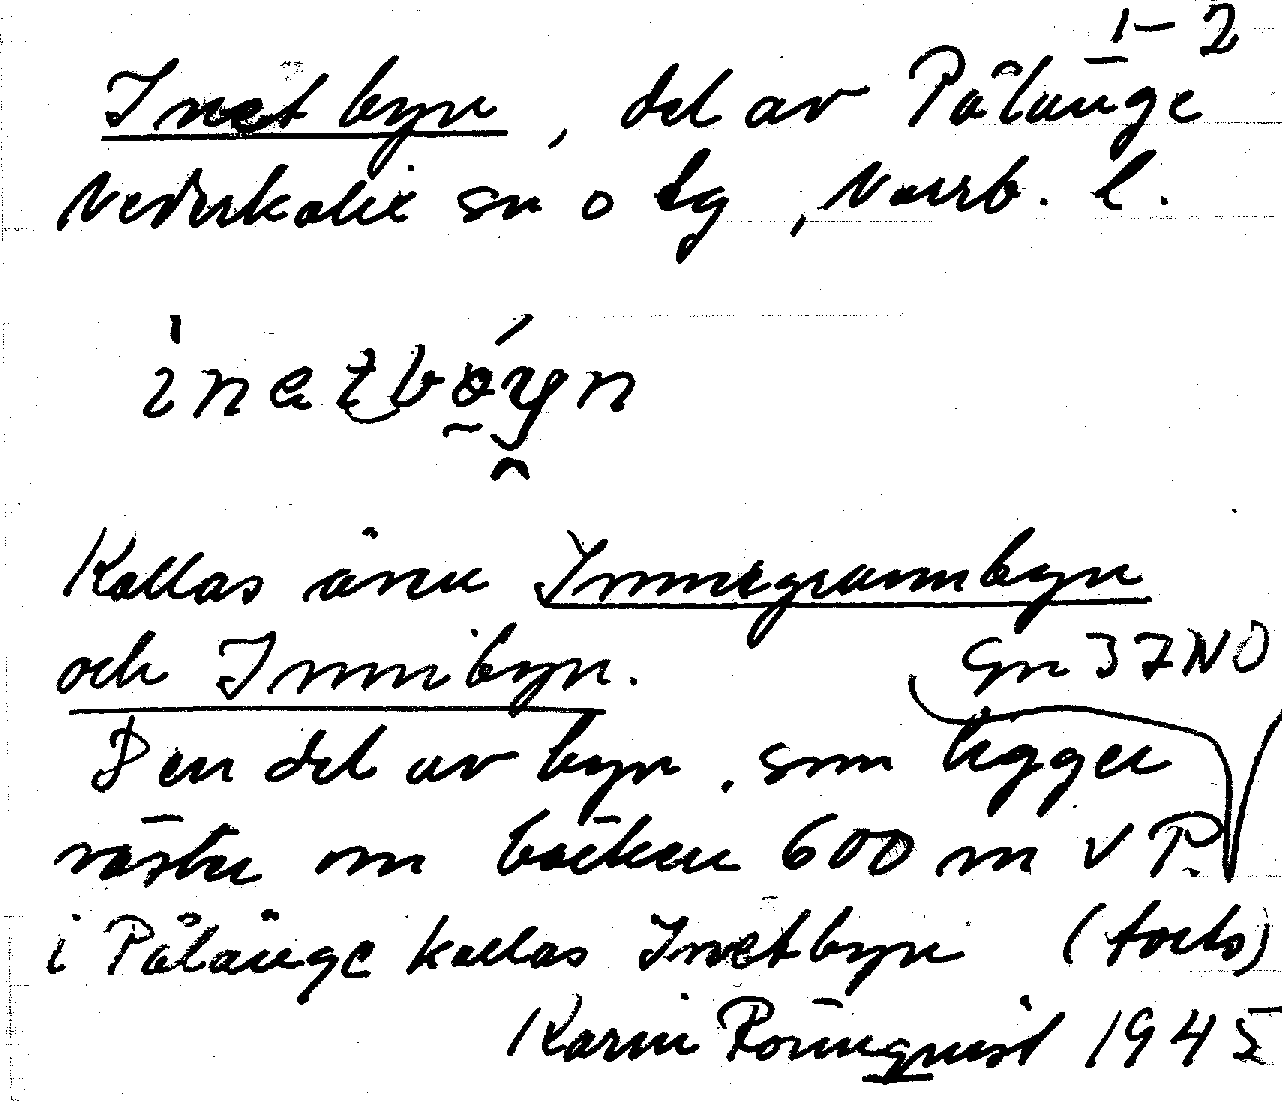 1-2
Inetbyn, del av Pålänge
Nederkalix sn o tg, Norrb. l.
inetböyn
Kallas även Innegrannbyn
och Innibyn.
Gn 37 NO
Den del av byn, som ligger
väster om bäcken 600 m v P.
i Pålänge kallas Inetbyn (forts)
Karin Rönnqvist 1945